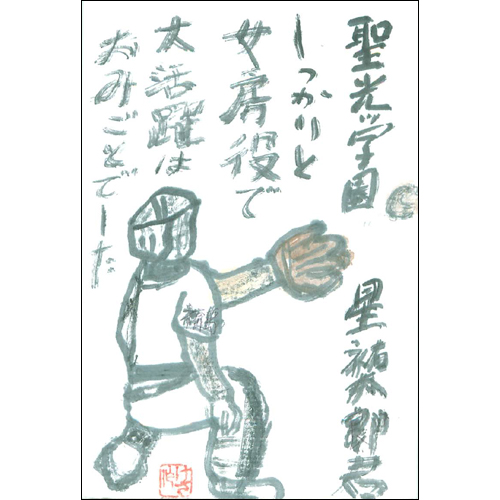 聖光学園
しっかりと
女房役で
大活躍は
おみごとでした
星祐太郎君